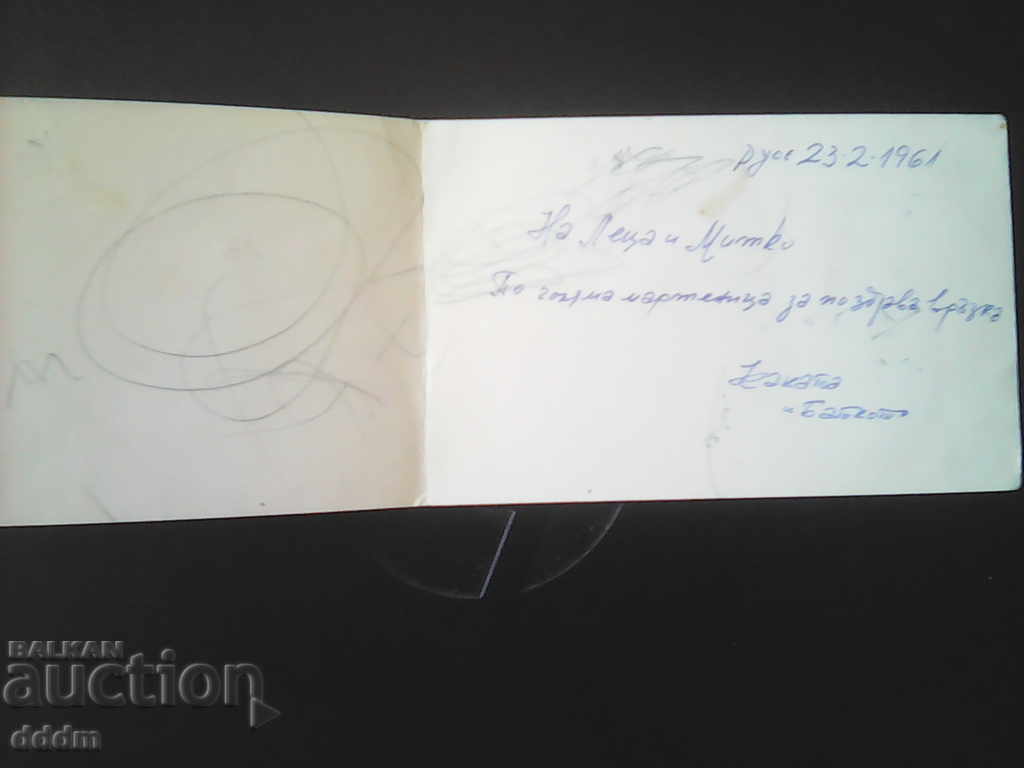 Русе 23·2·1961
На Леца и Митко
По голяма мартеница за по здрава връзка
Каката
и Баткото
BALKAN
auction
dddm